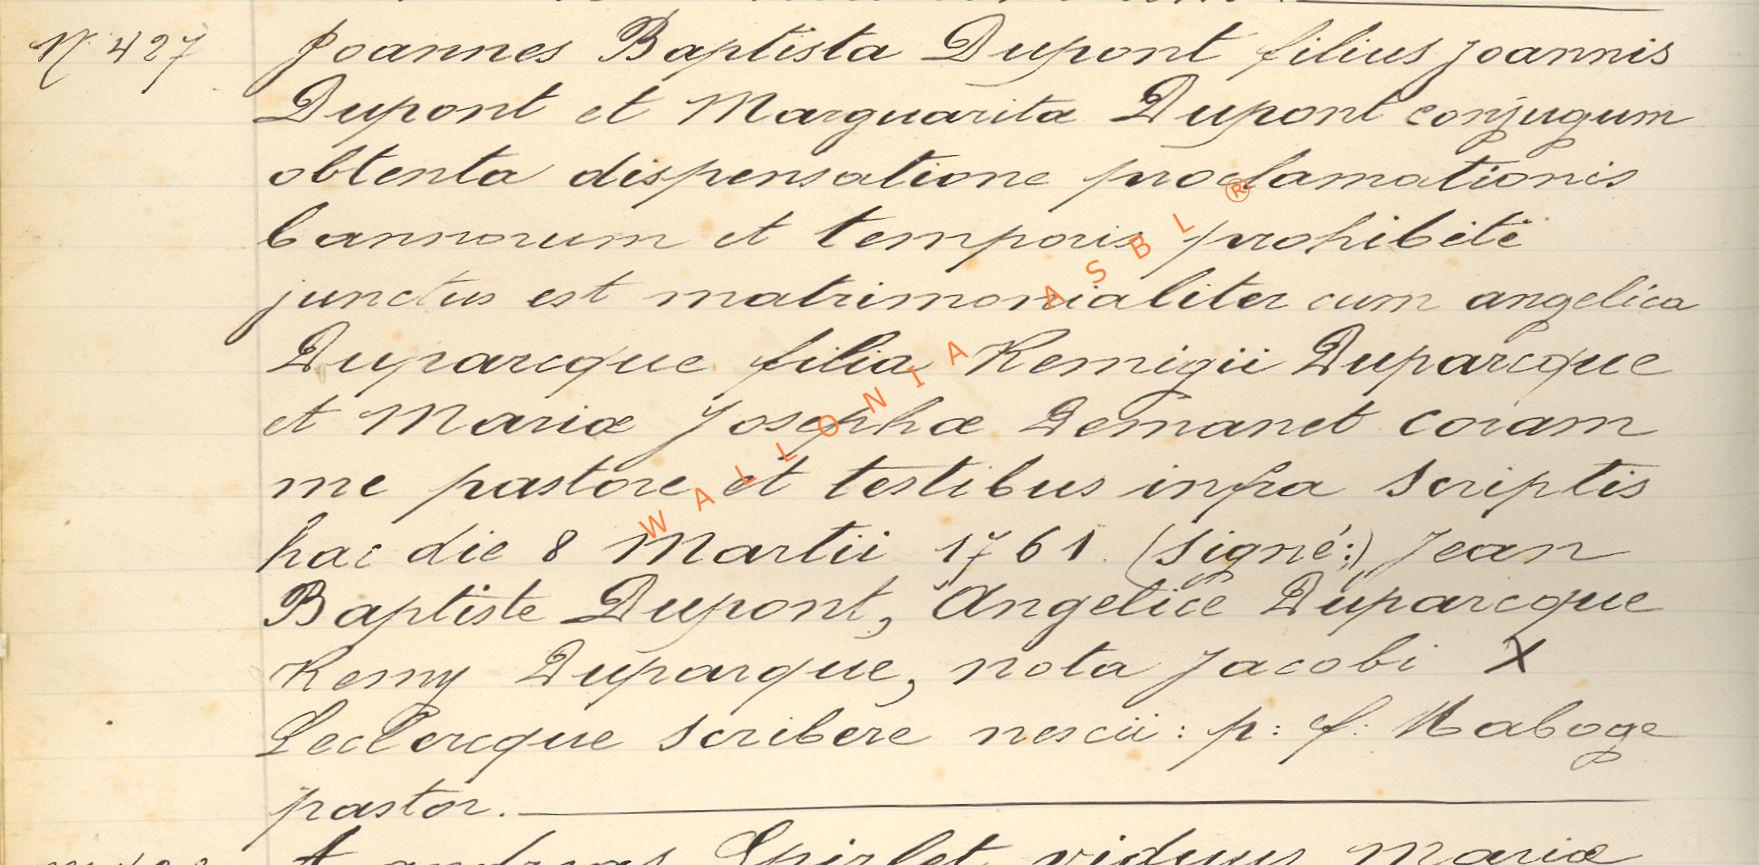 N° 427 Joannes Baptista Dupont filius Joannis
Dupont et Marguarita Dupont conjugum
obtenta dispensatione proclamationis
bannorum et temporis prohibiti
junctus est matrimonialiter cum angelica
Duparcque filia Remigii Duparcque
et Mariæ Josephæ Demanet coram
me pastore et testibus infra scriptis
hac die 8 Martii 1761. (signé:) Jean
Baptiste Dupont, Angelice Duparcque
Remy Duparque, nota Jacobi X
Leclercque scribere nescii: p: f: Haboge
pastor.
andreas Spirlet viduus Mariæ
WALLONIA ASBL ®